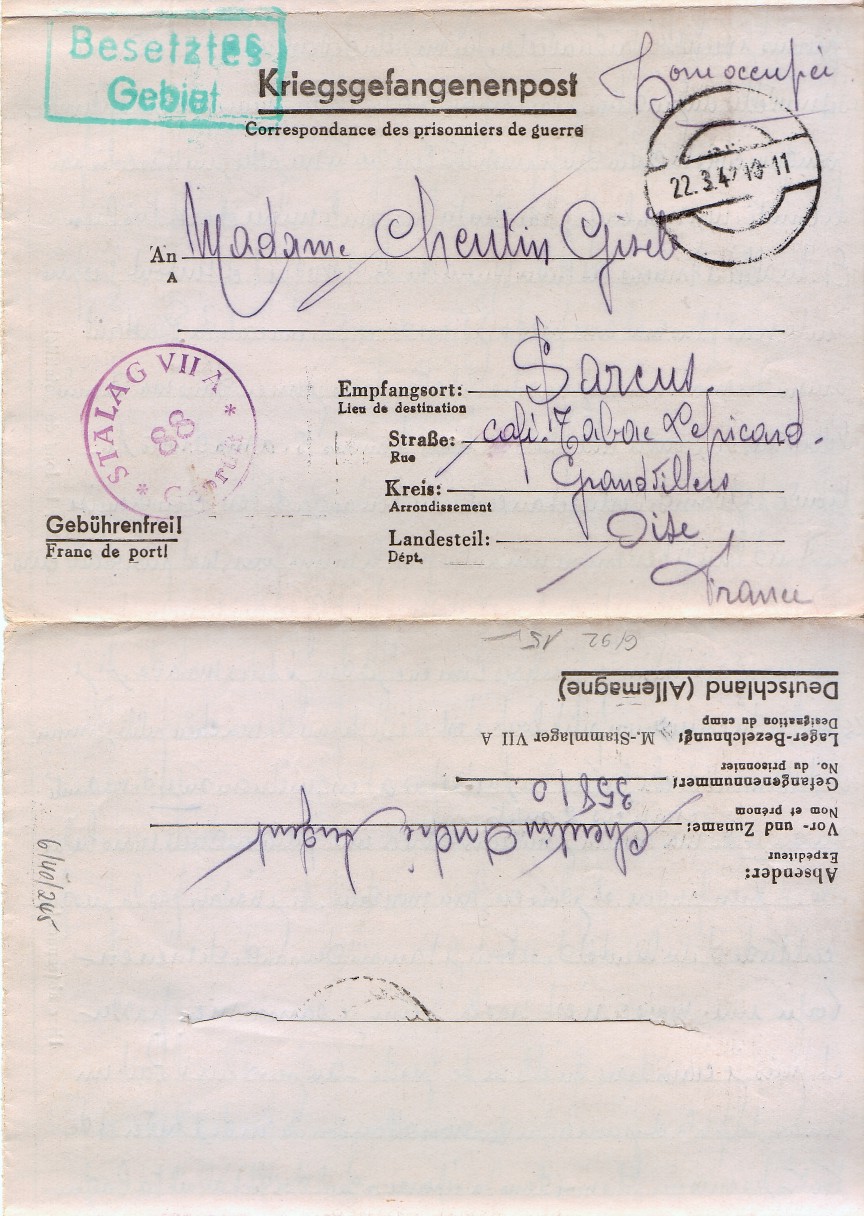 Besetztes
Gebiet
Kriegsgefangenenpost
Correspondance des prisonniers de guerre
Zone occupée
22.3.42 18-11
An Madame Chentin Gisel
A
STALAG VII A
88
Geprüft
Empfangsort: Sarcus.
Lieu de destination
Straße: café. Tabac Lepicard.
Rue
Kreis: Grandvillers
Arrondissement
Landesteil: Oise
Dépt.
France
Gebührenfrei!
Franc de port!
6/92 15
Absender:
Expéditeur
Vor- und Zuname: Chentin André
Nom et prénom
Gefangenennummer: 35810
No. du prisonnier
Lager-Bezeichnung: M.-Stammlager VII A
Désignation du camp
Deutschland (Allemagne)
6/40/245